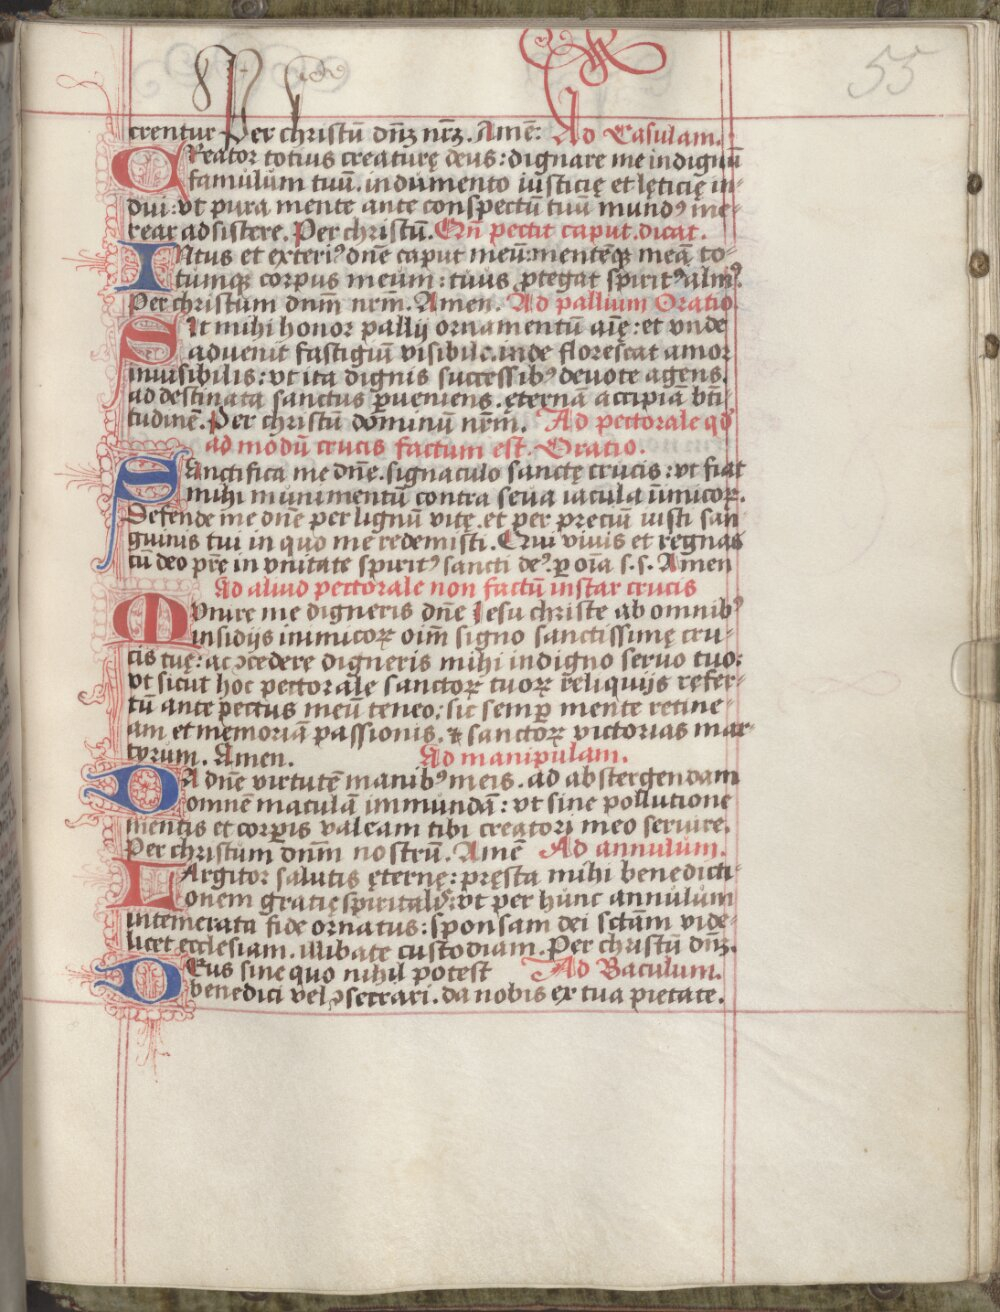 55
crentur Per christū dn̄ꝫ nr̄ꝫ. Amē: Ad Casulam.
CReator totius creaturę deus: dignare me indignū
famulum tuū. indumento iusticię et lęticię in-
dui: vt pura mente ante conspectū tuū mundꝰ me-
rear adsistere. Per christū. Qn̄ pectit caput. dicat.
INtus et exteriꝰ dn̄e caput meū: mentēqꝫ meā to-
tumqꝫ corpus meum: tuus ꝓtegat spiritꝰ almꝰ.
Per christum dnm̄ nrm̄. Amen. Ad pallium Oratio.
SIt mihi honor pallij ornamentū aīę: et vnde
aduenit fastigiū visibile. inde florescat amor
inuisibilis: vt ita dignis successibꝰ deuote agens.
ad destinata sanctus ꝑueniens. ęternā accipiā bt̄i
tudinē. Per christū dominū nr̄m. Ad pectorale qd̄
ad modū crucis factum est. Oratio.
SAnctifica me dn̄e. signaculo sanctę crucis: vt fiat
mihi munimentū contra seua iacula inimicoꝝ.
Defende me dn̄e per lignū vitę. et per preciū iusti san
guinis tui in quo me redemisti. Qui viuis et regnas
cū deo pr̄e in vnitate spiritꝰ sancti deꝰ. ꝑ oīa s. s. Amen
Ad aliud pectorale non factū instar crucis
MVnire me digneris dn̄e Iesu christe ab omnibꝰ
insidijs inimicoꝝ oīm signo sanctissimę cru-
cis tuę: ac ↄcedere digneris mihi indigno seruo tuo:
vt sicut hoc pectorale sanctoꝝ tuoꝝ reliquijs refer-
tū ante pectus meū teneo: sic semꝑ mente retine-
am et memoriā passionis. & sanctoꝝ victorias mar-
tyrum. Amen. Ad manipulam.
DA dn̄e virtutē manibꝰ meis. ad abstergendam
omnē maculā immundā: vt sine pollutione
mentis et corꝑis valeam tibi creatori meo seruire.
Per christum dnm̄ nostrū. Amē Ad annulum.
LArgitor salutis ęternę: pręsta mihi benedicti-
onem gratię spiritalis: vt per hunc annulum
intemerata fide ornatus: sponsam dei sctām vide-
licet ecclesiam. illibate custodiam. Per christū dn̄ꝫ.
DEus sine quo nihil potest Ad Baculum.
benedici vel ↄsecrari. da nobis ex tua pietate.